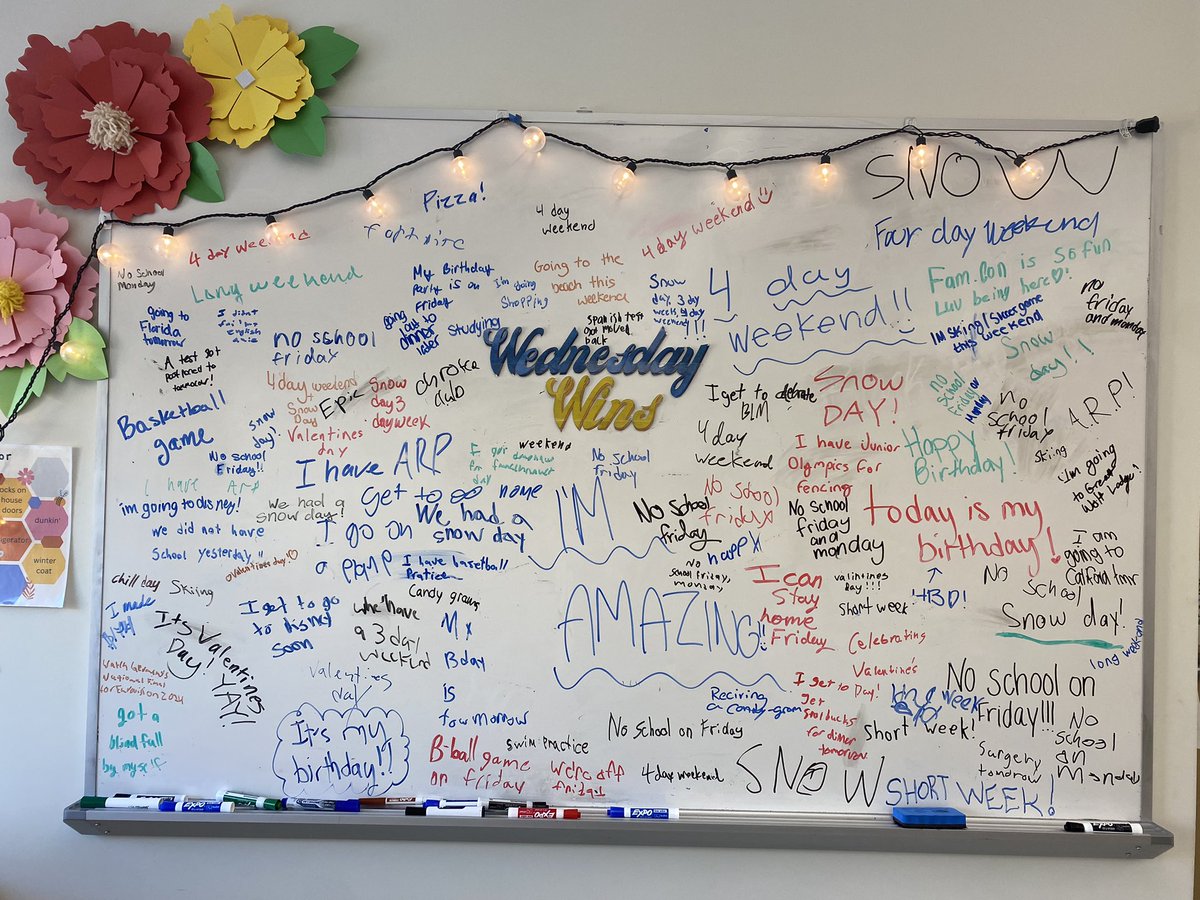 SNOW
Pizza!
4 day
weekend
4 day weekend
4 day weekend
Four day weekend
No School
Monday
Long weekend
My Birthday
Party is on
Friday
I'm going
Shopping
Going to the
beach this
weekend
Snow
day, 3 day
week, 4 day
weekend!!!
4 day
weekend!!
Fam.Con is so fun
Luv being here
no
friday
and monday
going to
Florida
tomorrow
I didnt
no school
friday
going
out to
dinner
later
studying
Spanish test
got moved
back
Wednesday
Wins
this weekend
Snow
day!!
A test got
Postponed to
tomorrow!
4 day weekend
+
Snow
Day
+
Valentines
day
Epic
Snow
day 3
day week
choke
club
I get to
BLM
Snow
DAY!
no
School
Friday or
Monday
no
school
friday
A.R.P!
Basketball
game
snow
day!
No school
Friday!!
I have ARP
weekend
No School
friday
4 day
weekend
I have Junior
Olympics for
fencing
Happy
Birthday!
Skiing
I'm going
to Great
Wolf Lodge!
I have ARP
im going to disney!
We had a
snow day!
get to go home
We had a
snow day
I go on
I'M
AMAZING!!
No School
friday
No School
friday
No School
friday
and
monday
today is my
birthday!
we did not have
school yesterday!!
valentines day!
I have basketball
Pratice
Candy grams
No
school friday,
monday
I can
Stay
home
Friday
valintines
day!!!
Short week!
HBD!
No
School
I am
going to
Calford tmr
chill day
Skiing
I made
It's Valentines
Day!
YAY!!
I get to go
to disney
soon
We have
a 3 day
weekend
My
Bday
is
towmorrow
Celebrating
Valentine's
Day!
Snow day!
long weekend
Watch Germany's
National Final
for Eurovision 2024
valentines
day
got a
blind full
by myself
It's my
birthday!!
Reciving
a candy-gram
I get to
get
starbucks
for dinner
tomorrow
short week!
No school on
Friday!!!
No
school
on
Monday
B-ball game
on friday
swim practice
We're off
friday!
No school on Friday
4 day weekend
SNOW
SHORT WEEK!
surgery
tomdrow
or
house
doors
dunkin'
winter
coat
EXPO
EXPO
EXPO